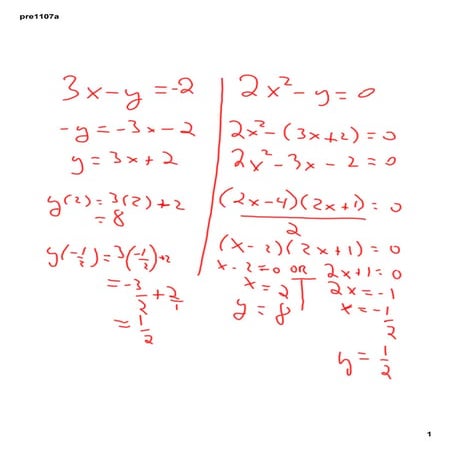 pre1107a
3x - y = -2
-y = -3x - 2
y = 3x + 2
y(2) = 3(2) + 2
= 8
y(-1/2) = 3(-1/2) + 2
= -3/2 + 2/1
= 1/2
2x² - y = 0
2x² - (3x + 2) = 0
2x² - 3x - 2 = 0
(2x - 4)(2x + 1) = 0
2
(x - 2)(2x + 1) = 0
x - 2 = 0 OR 2x + 1 = 0
x = 2 2x = -1
y = 8 x = -1/2
y = 1/2
1